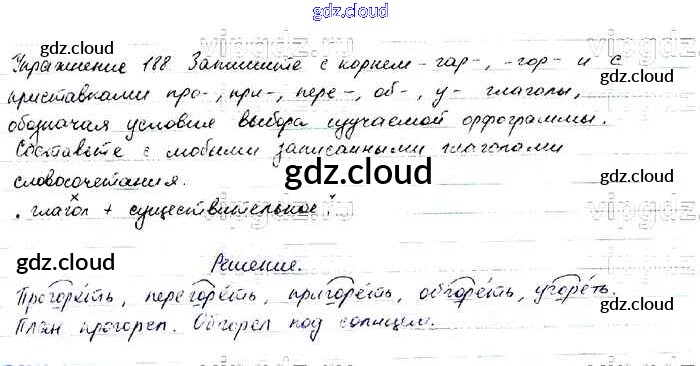 gdz.cloud
gdz.cloud
Упражнение 188 Запишите с корнем -гар-, -гор- и с
приставками про-, при-, пере-, об-, у- глаголы,
gdz.cloud
обозначая условия выбора изучаемой орфограммы.
Составьте с любыми записанными глаголами
словосочетания.
gdz.cloud
gdz.cloud
глагол + существительное
х
gdz.cloud
Решение.
gdz.cloud
Прогореть, перегореть, пригореть, обгореть, угореть.
План прогорел. Обгорел под солнцем.
gdz.cloud
gdz.cloud